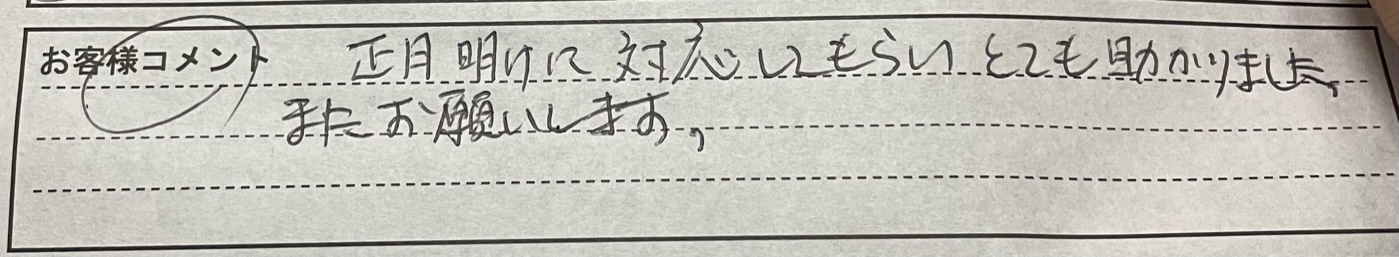 お客様コメント 正月明けに対応してもらいとても助かりました。
またお願いします。